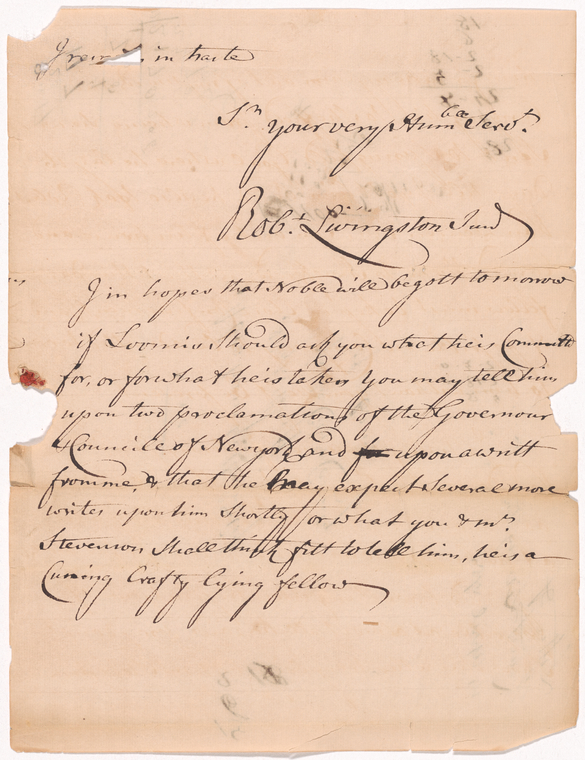 I rem in haste
Sr. your very Humble Servt.
Robt. Livingston Junr
I in hopes that Noble will be gott tomorrow
if Loomis should ask you what he is Committd
for, or for what he is taken you may tell him
upon two proclamations of the Governour
& Councile of Newyork, and for upon a writt
from me, & that he may expect Several more
writes upon him Shortly or what you & mr.
Stevenson Shall think fitt to tell him, he is a
Cuning Crafty lying fellow